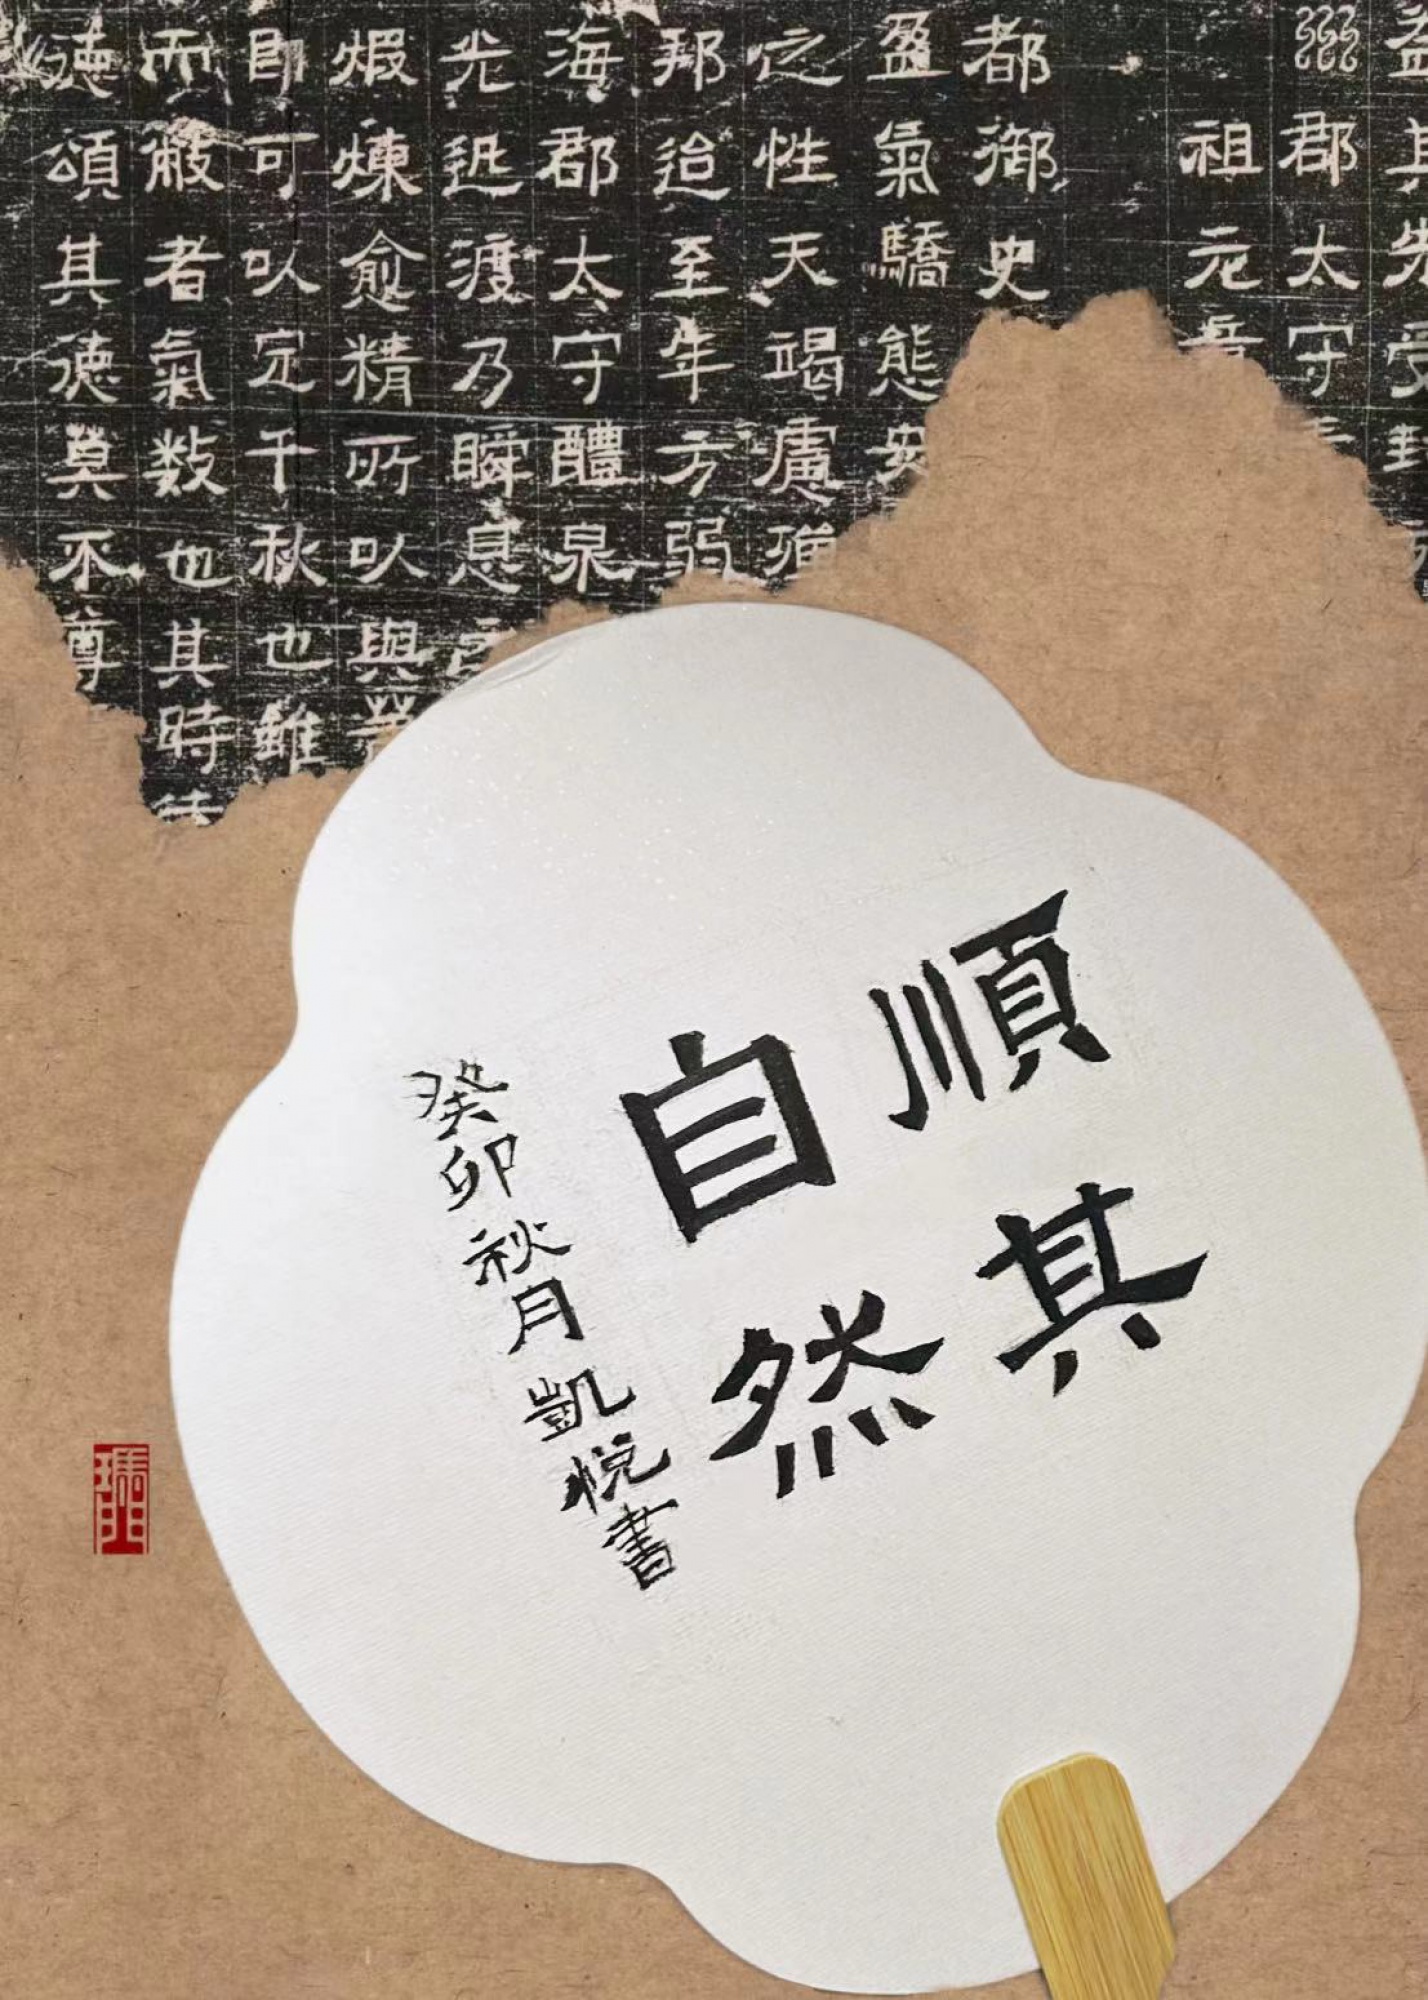 其先受封
郡太守
祖元
都御史
盈氣驕態安
之性天竭慮殫
邦迨至年方弱
海郡太守醴泉
光迅渡乃瞬息
煅煉愈精所以與
即可以定千秋也雖
而服者氣數也其時
德頌其德莫不尊
順其
自然
癸卯秋月凱悅書